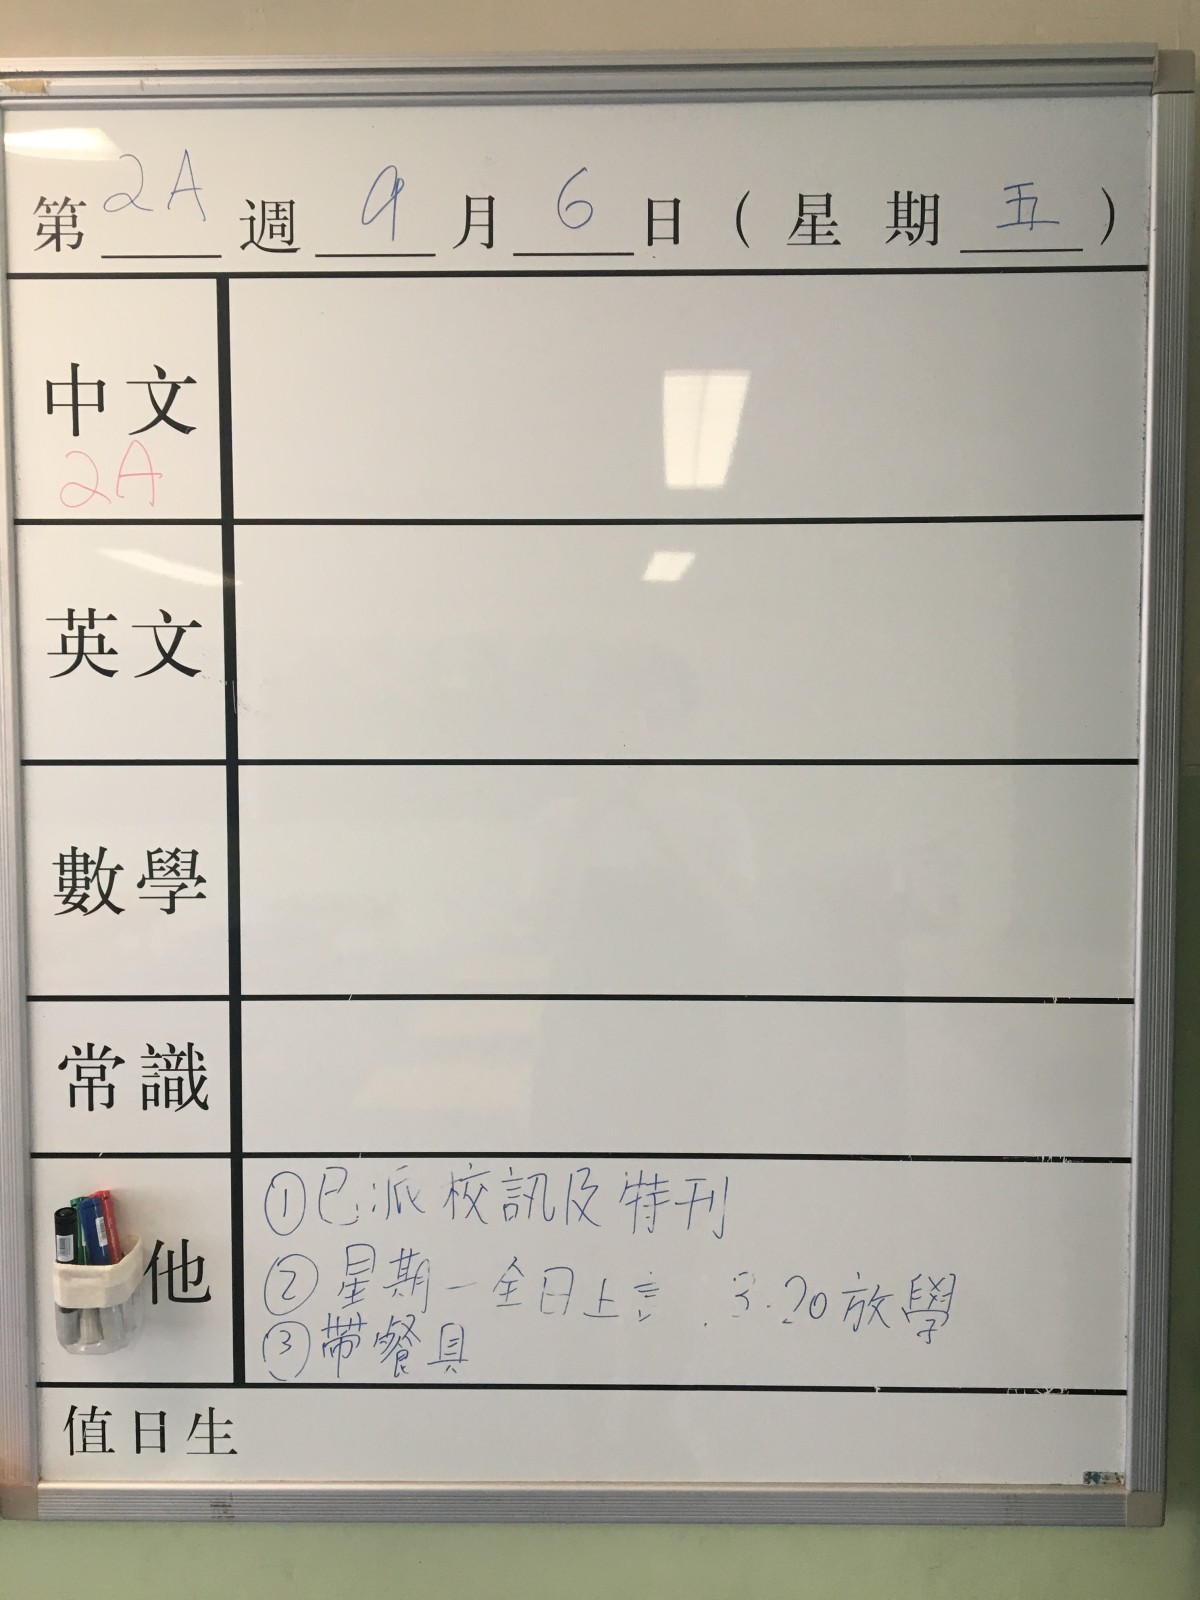 第 2A 週 9 月 6 日 ( 星 期 五 )
中文
2A
英文
數學
常識
他
①已派校訊及特刊
②星期一全日上 3.20放學
③帶餐具
值日生